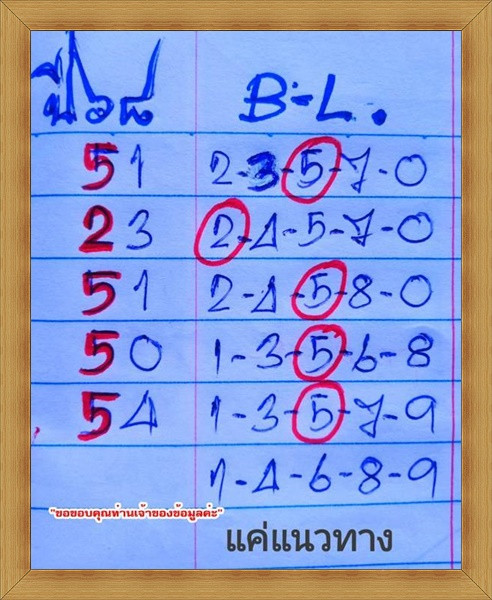 ปี๖๘ B-L.
51 2-3-5-7-0
23 2-4-5-7-0
51 2-4-5-8-0
50 1-3-5-6-8
54 1-3-5-7-9
1-4-6-8-9
"ขอขอบคุณท่านเจ้าของข้อมูลค่ะ"
แค่แนวทาง